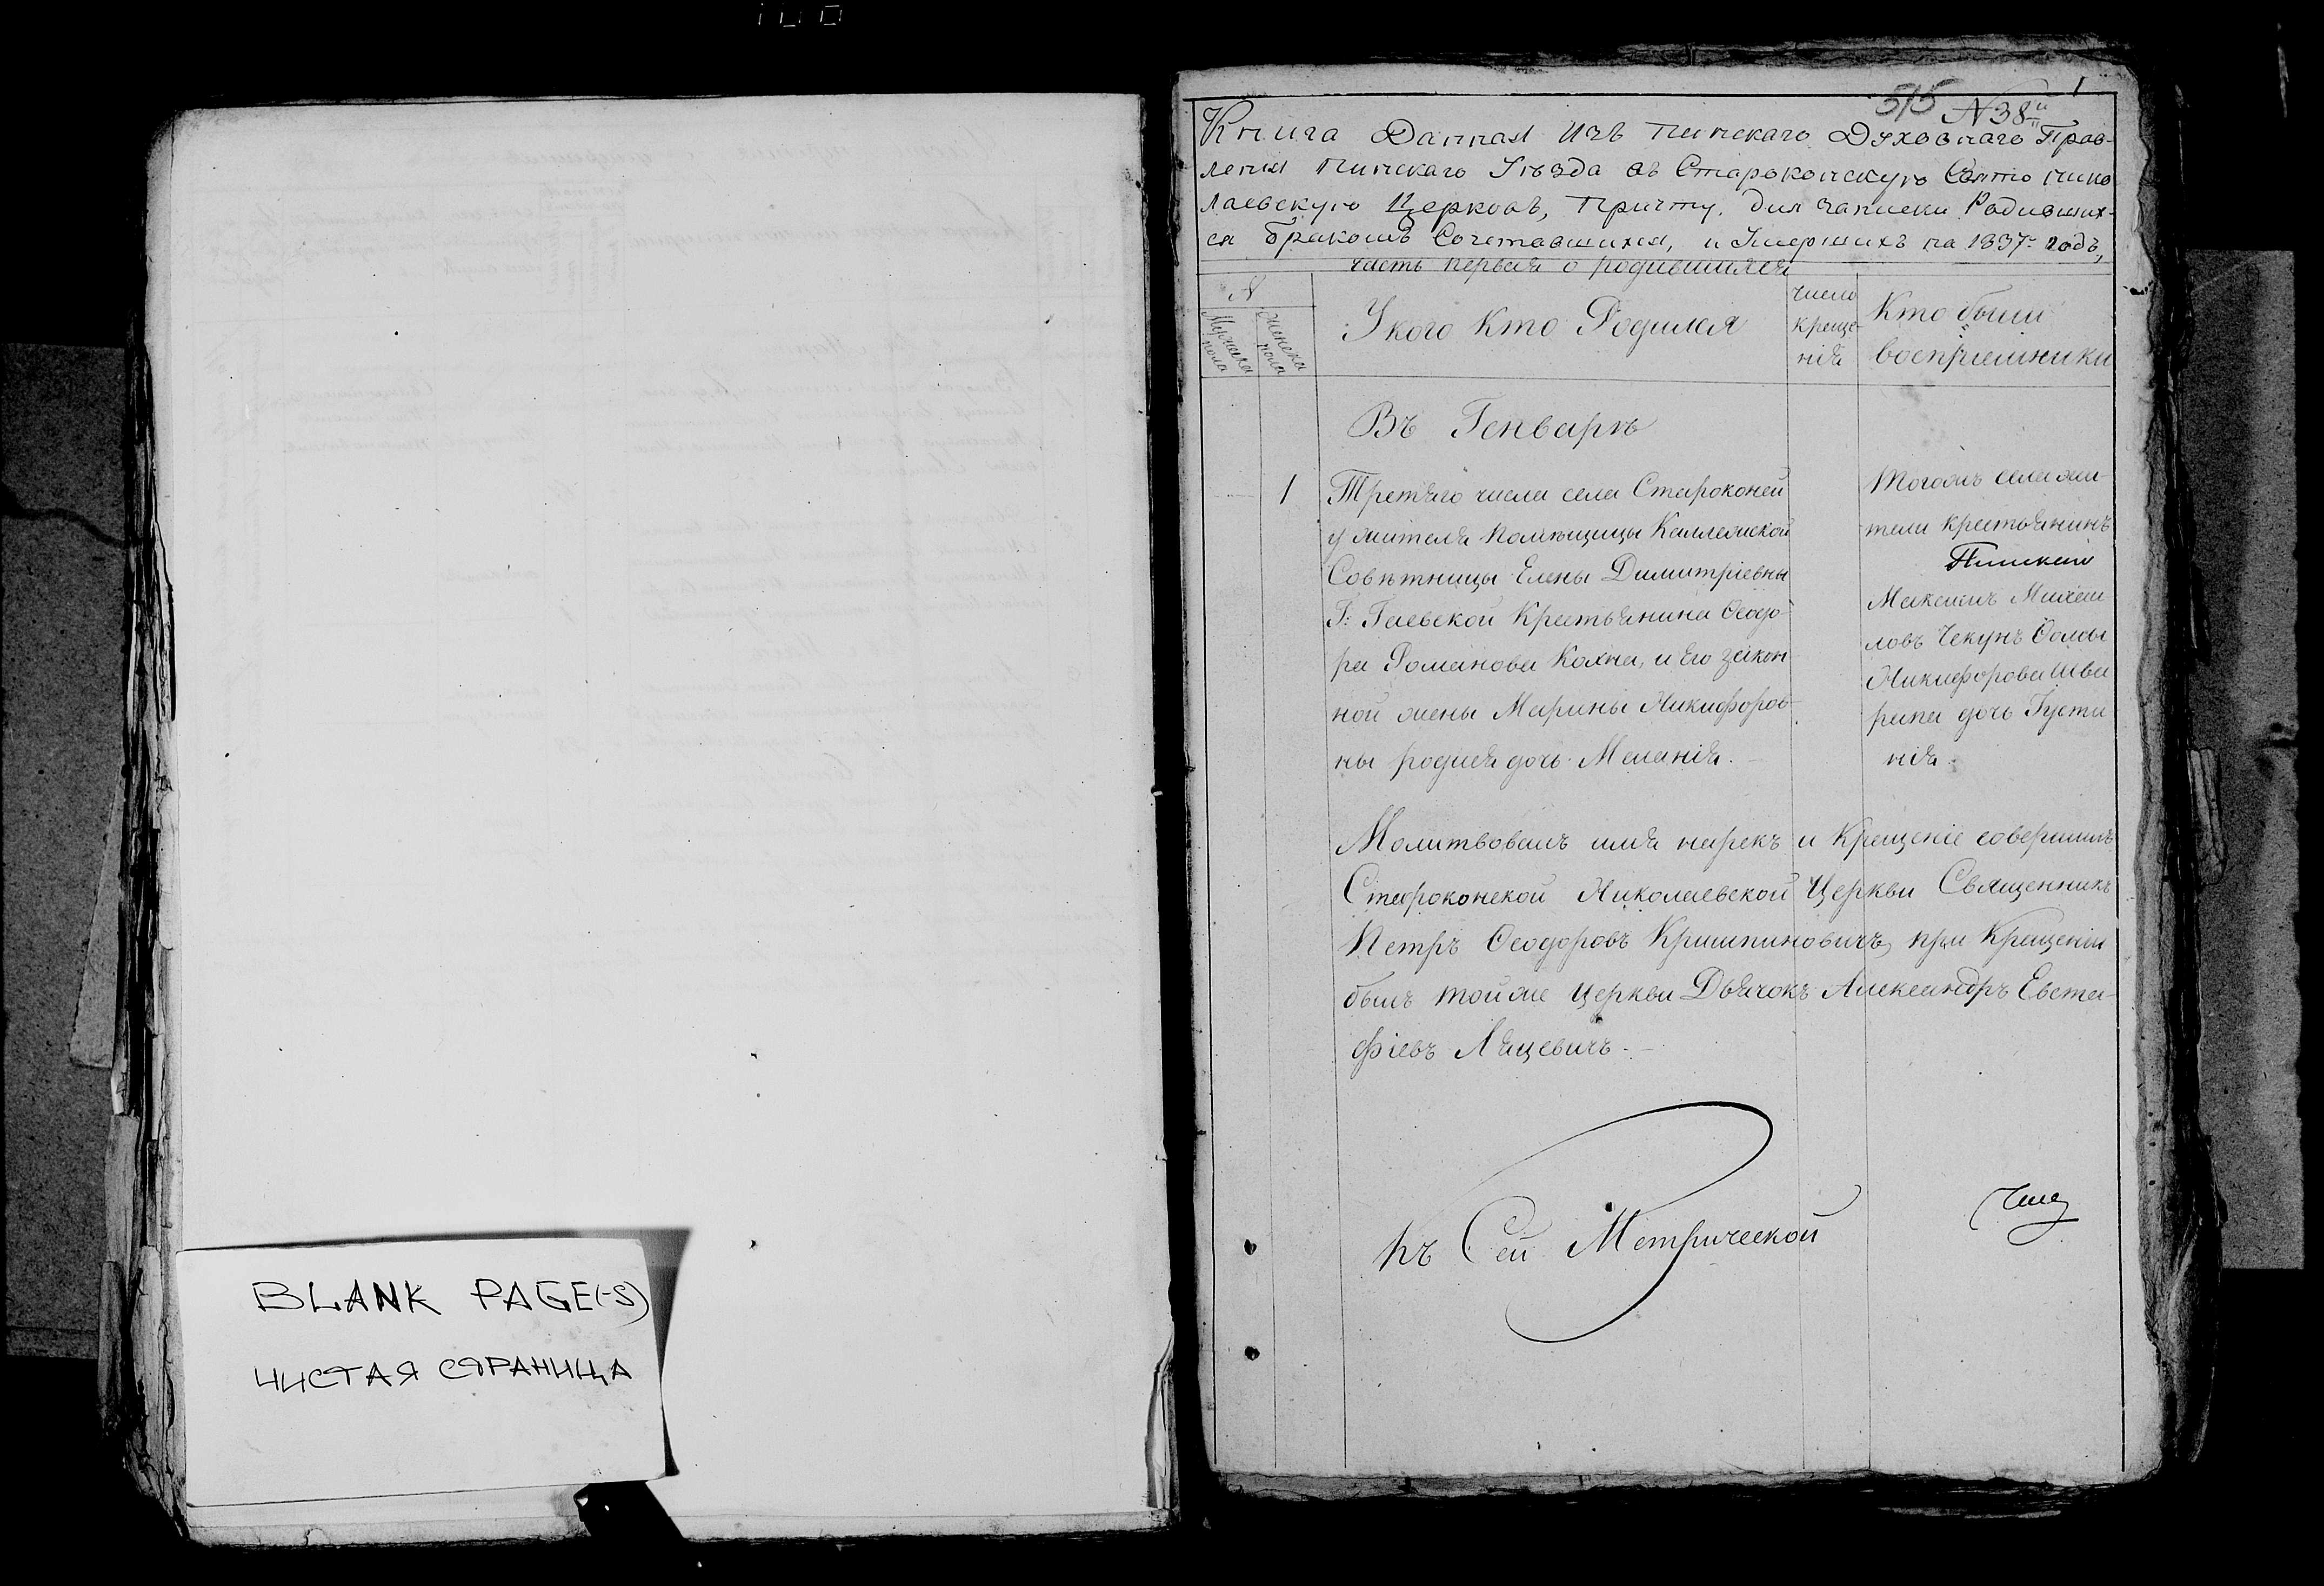 BLANK PAGE(-S)
ЧИСТАЯ СТРАНИЦА
515 N 38й 1
Книга Данная Изъ пинскаго Духовнаго Прав-
ления пинскаго Уѣзда въ Староконскую Свято нико
лаевскую Церковъ, Причту. Для записки Родивших-
ся бракомъ Сочетавшихся, и Умершихъ на 1837-годъ,
часть первая о родившихся
N
Мужеска пола
Женска пола
У кого Кто Родился
число креще-нія
Кто были воспріемники
Въ Генварѣ
1
Третяго числа села Староконей
у жителя помѣщицы Коллежской
Совѣтницы Елены Димитріевны
Г: Гаевской Крестьянина Ѳеодо
ра Романова Кохна, и его закон
ной жены Марины Никифоров-
ны родися дочь Меланія.
Тогожъ села жи-
тели крестьянинъ
Максимъ Михаи
ловъ Чекунъ Ѳомы
Никифорова Шва
рипа дочь Густи
нія.
Молитвовалъ имя нарекъ и Крещеніе совершилъ
Староконской Николаевской Церкви Священникъ
Петръ Ѳеодоровъ Криштиновичъ, при Крещеніи
былъ тойже Церкви Дьячокъ Александръ Евста-
фіевъ Ляцевичъ.
Къ Сей Метрической